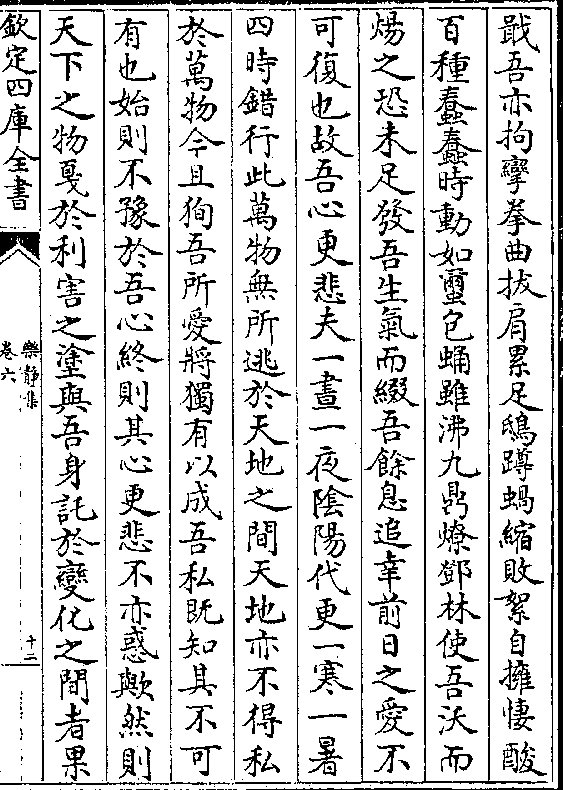 戢吾亦拘攣拳曲拔肩累足鴟蹲蝸縮敗絮自擁悽酸
百種蠢蠢時動如蠒包蛹雖沸九鼎燎鄧林使吾沃而
煬之恐未足發吾生氣而綴吾餘息追幸前日之愛不
可復也故吾心更悲夫一晝一夜隂陽代更一寒一暑
四時錯行此萬物無所逃於天地之間天地亦不得私
於萬物今且狥吾所愛將獨有以成吾私既知其不可
有也始則不豫於吾心終則其心更悲不亦惑歟然則
天下之物戛於利害之塗與吾身託於變化之間者果
欽定四庫全書
樂静集
卷六
十二